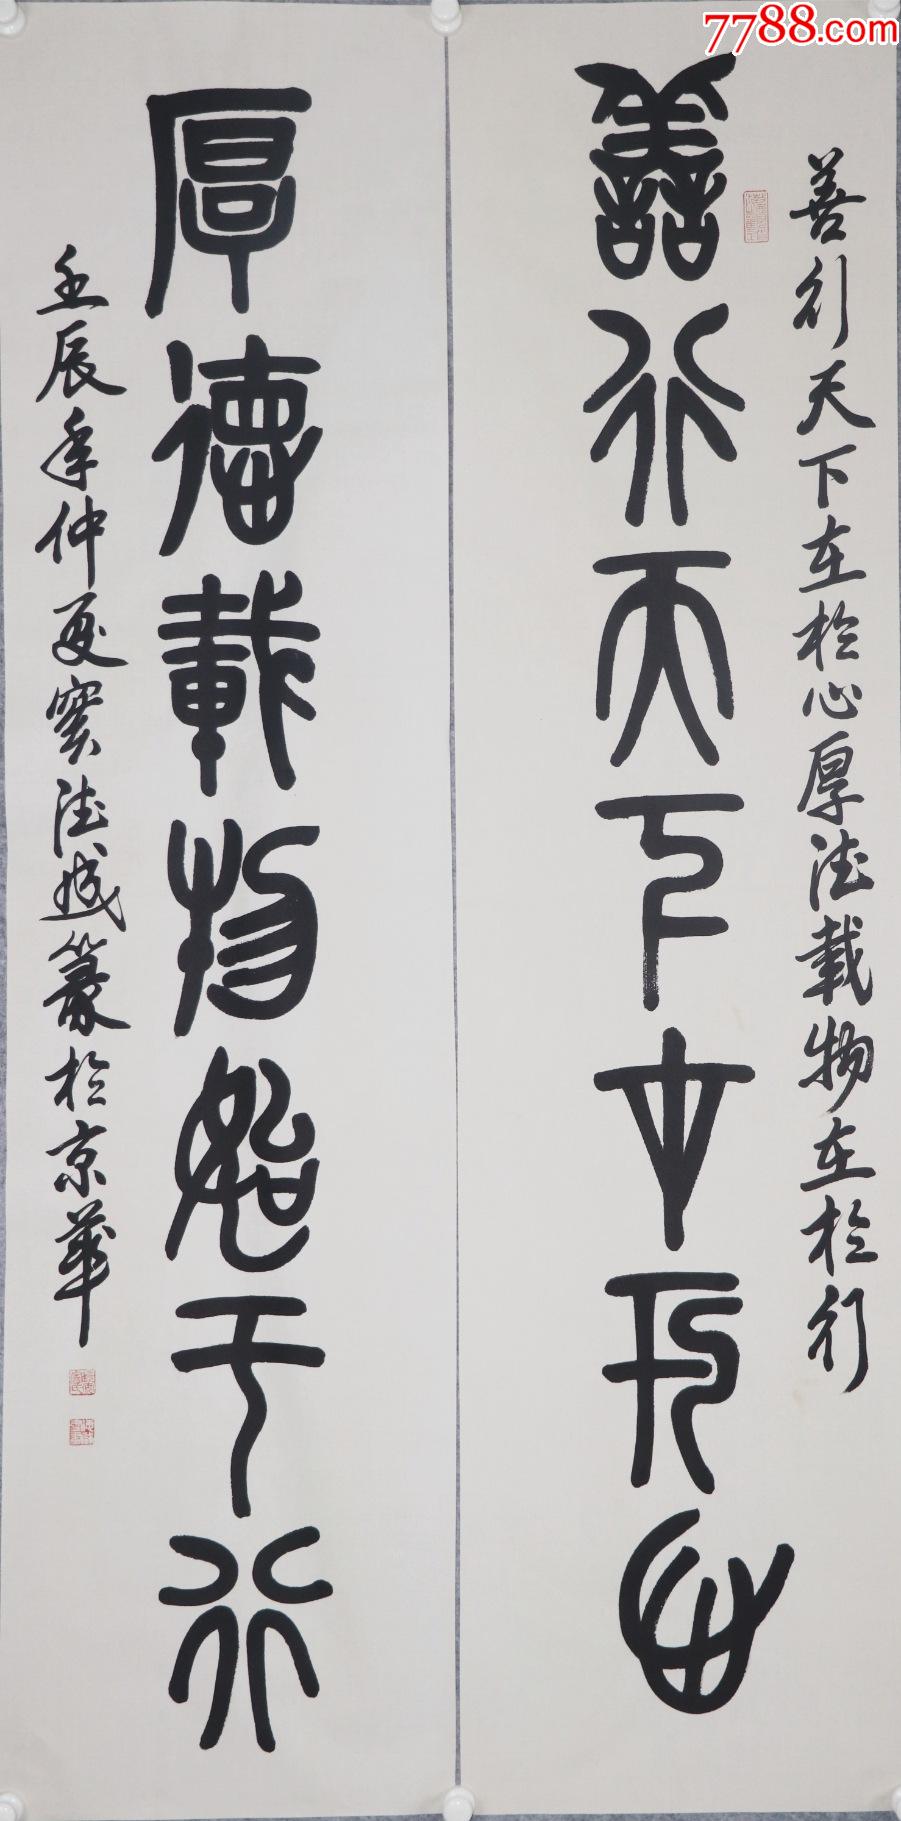 7788.com
善行天下在於心厚德載物在於行
善行天下在于心
厚德載物始于行
壬辰年仲夏竇德城篆於京華